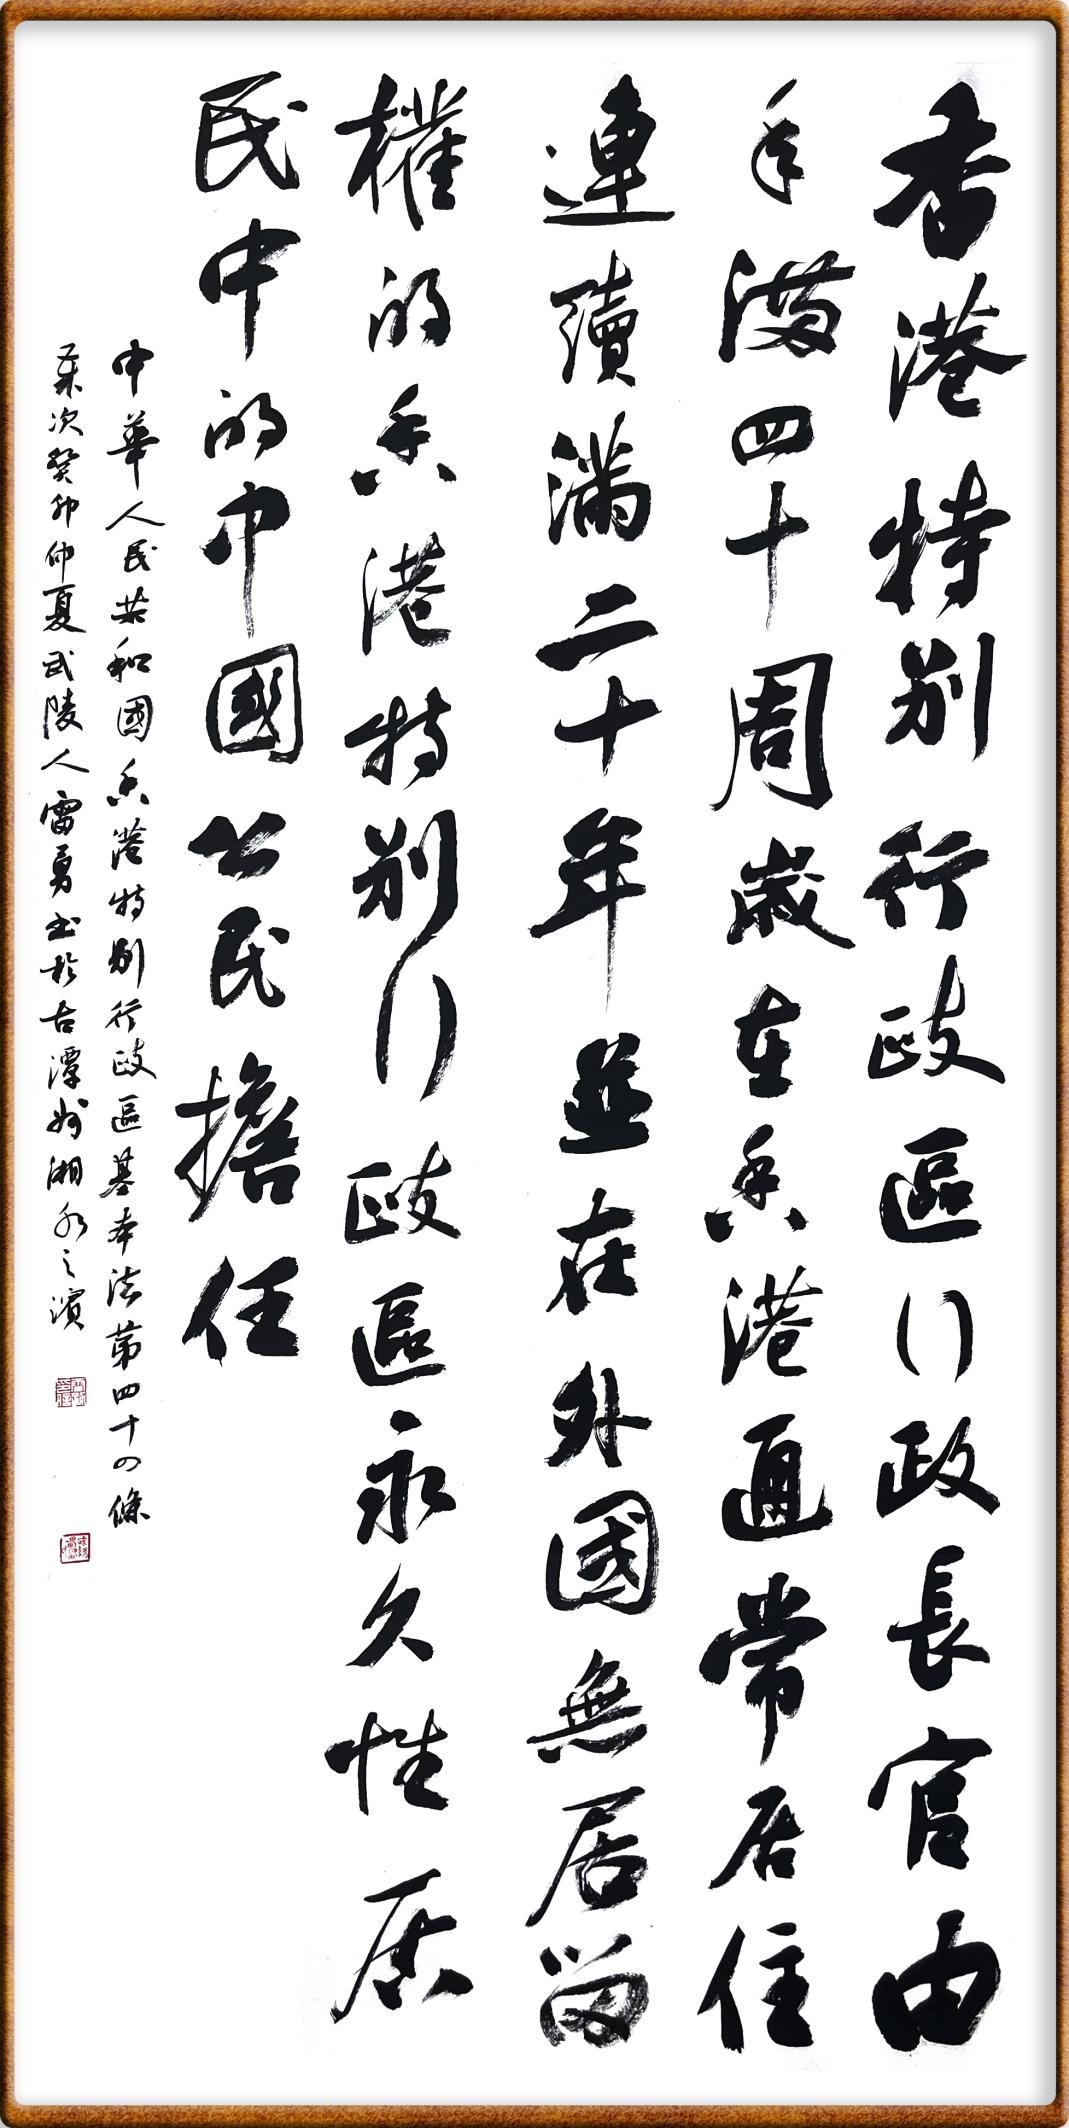 香港特别行政區行政長官由
年滿四十周歲在香港通常居住
連續滿二十年並在外國無居留
權的香港特别行政區永久性居
民中的中國公民擔任
中華人民共和國香港特别行政區基本法第四十四條
歲次癸卯仲夏武陵人雷勇書於古潭州湘水之濱